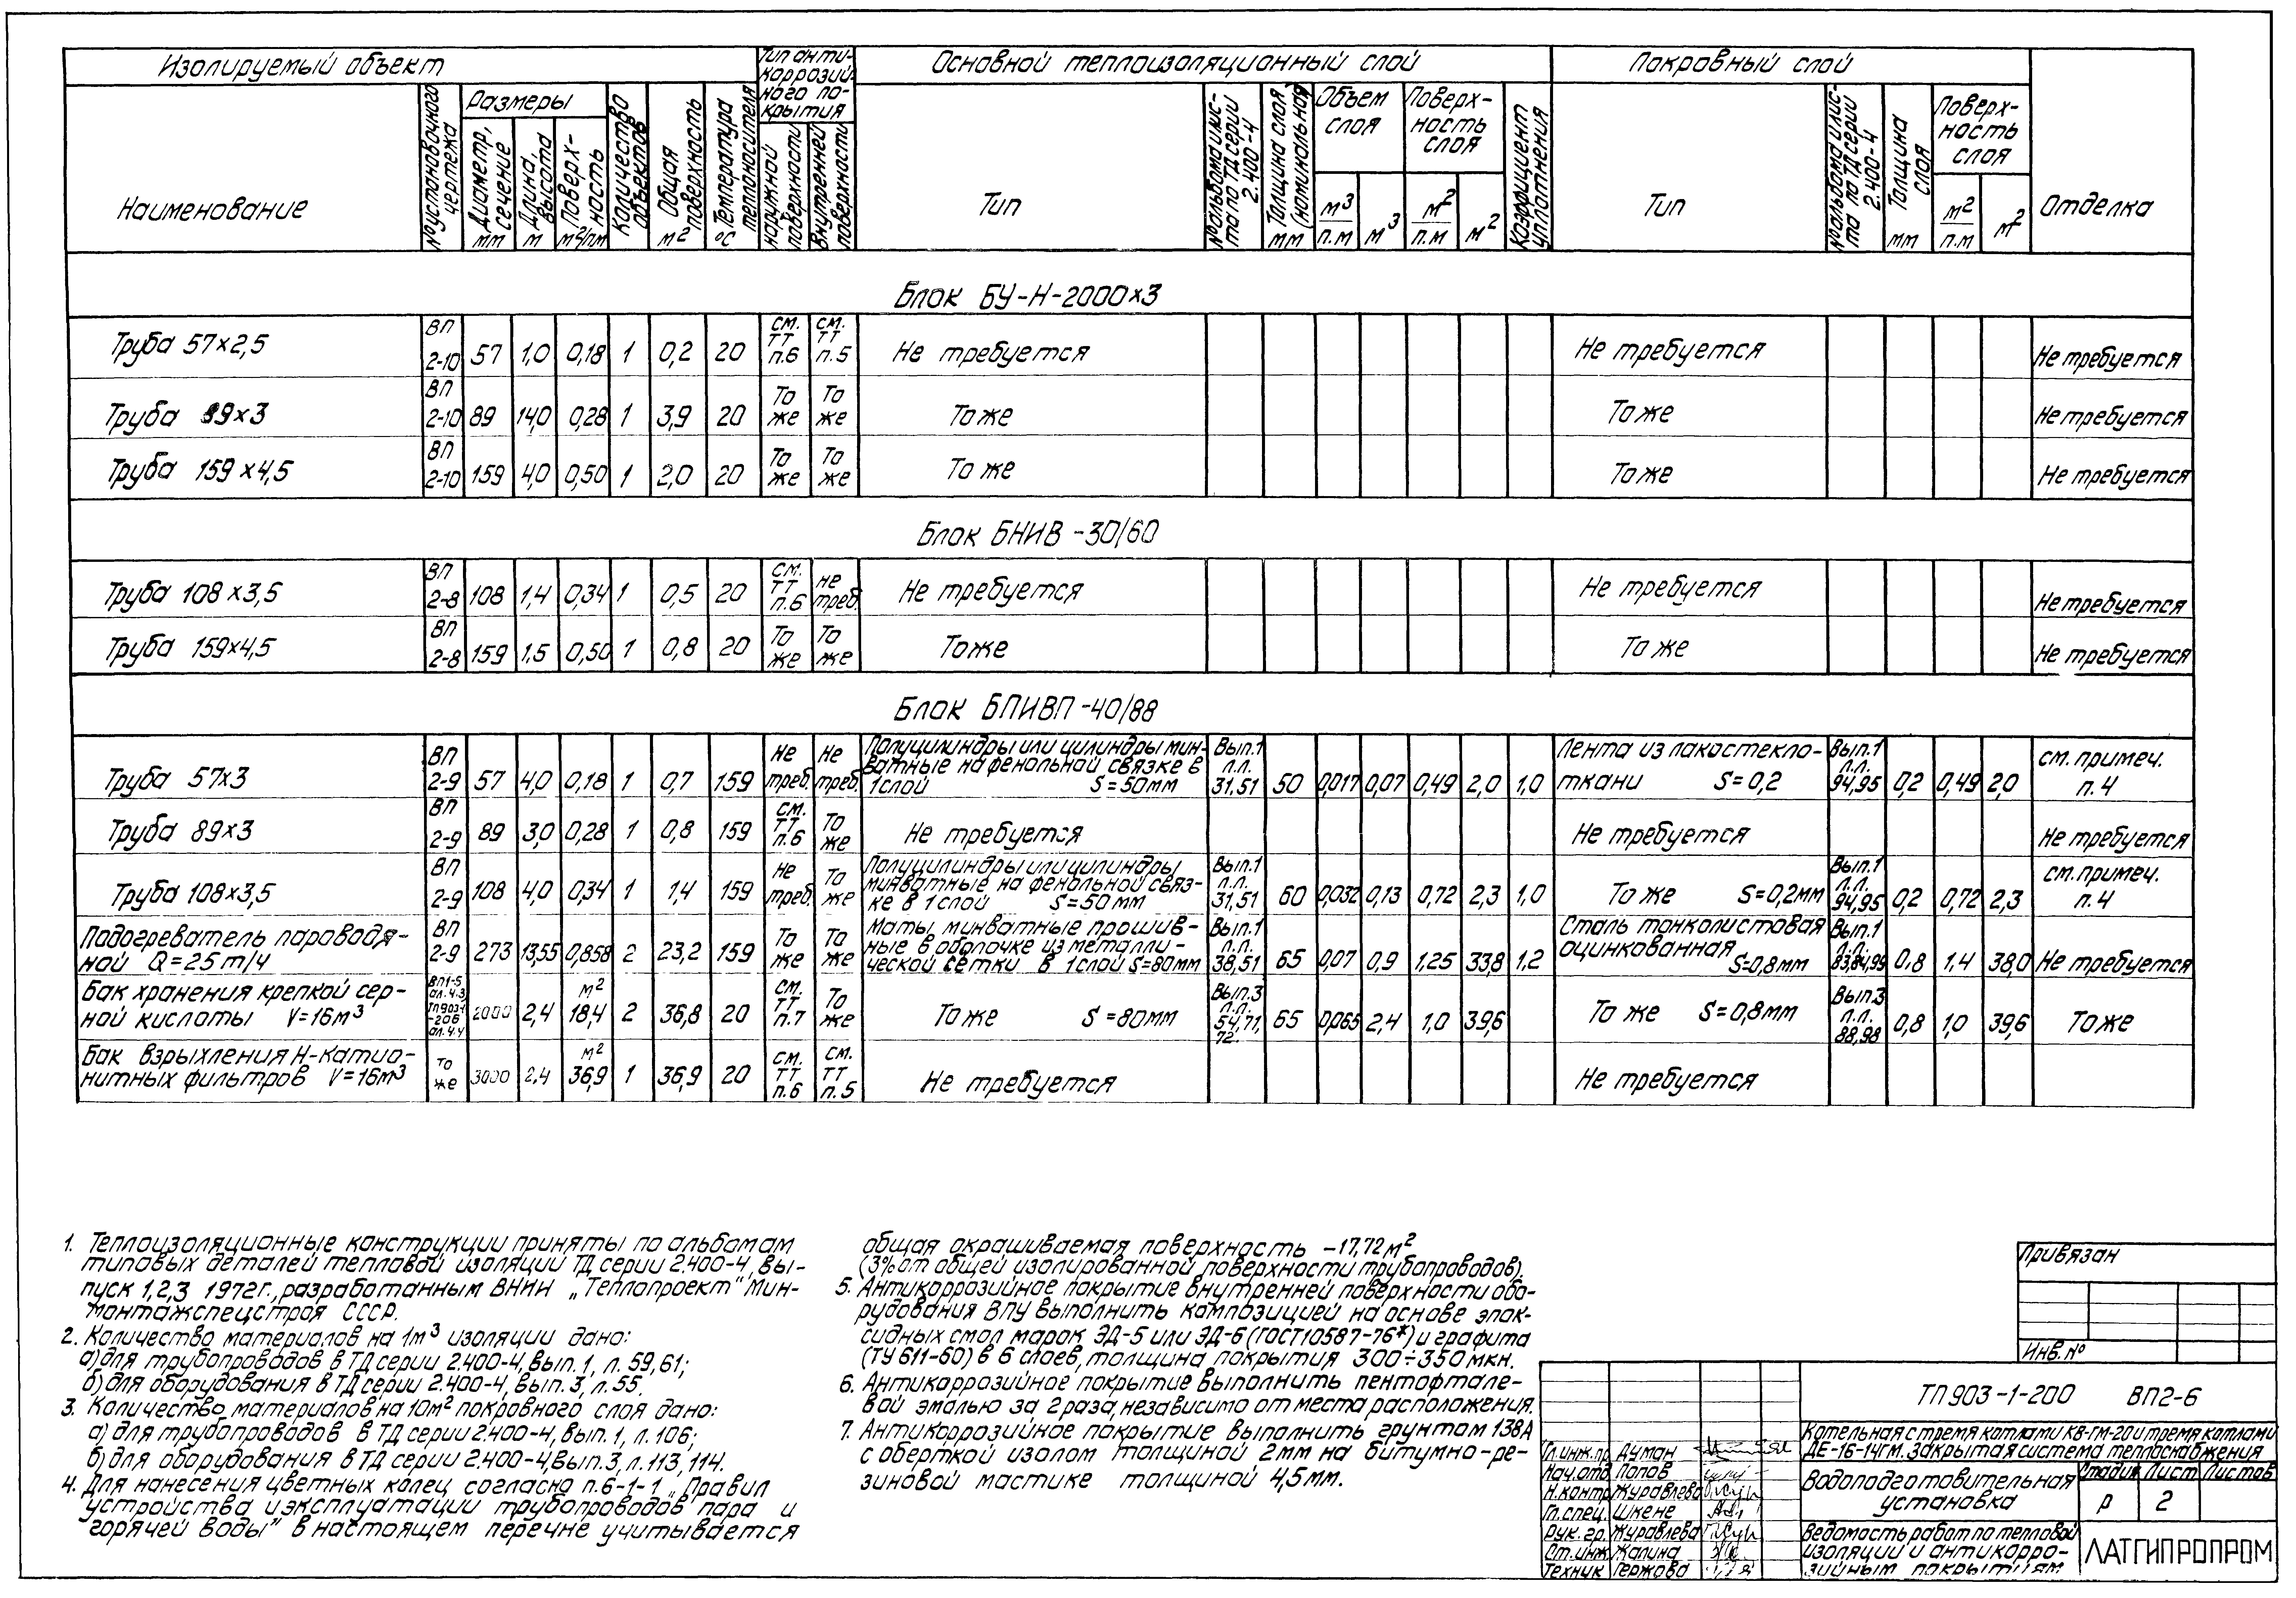 Изолируемый объект
Тип анти-
коррозий-
ного по-
крытия
Основной теплоизоляционный слой
Покровный слой
Наименование
№ установочного чертежа
Размеры
Диаметр, сечение мм
Длина, высота м
Поверх-ность м²/пм
Количество объектов
Общая поверхность м²
Температура теплоносителя °С
наружной поверхности
Внутренней поверхности
Тип
№ альбома и лис-та по ТД серии 2.400-4
Толщина слоя (номинальная) мм
Объем слоя
м³/п.м м³
Поверх-ность слоя
м²/п.м м²
Коэффициент уплотнения
Тип
№ альбома и лис-та по ТД серии 2.400-4
Толщина слоя мм
Поверх-ность слоя
м²/п.м м²
Отделка
Блок БУ-Н-2000×3
Труба 57×2,5 ВП 2-10 57 1,0 0,18 1 0,2 20 см. ТТ п.6 см. ТТ п.5 Не требуется Не требуется Не требуется
Труба 89×3 ВП 2-10 89 14,0 0,28 1 3,9 20 То же То же То же То же Не требуется
Труба 159×4,5 ВП 2-10 159 4,0 0,50 1 2,0 20 То же То же То же То же Не требуется
Блок БНИВ-30/60
Труба 108×3,5 ВП 2-8 108 1,4 0,34 1 0,5 20 см. ТТ п.6 не треб. Не требуется Не требуется Не требуется
Труба 159×4,5 ВП 2-8 159 1,5 0,50 1 0,8 20 То же То же То же То же Не требуется
Блок БПИВП-40/88
Труба 57×3 ВП 2-9 57 4,0 0,18 1 0,7 159 Не треб. Не треб. Полуцилиндры или цилиндры мин-ватные на фенольной связке в 1слой S=50мм Вып.1 л.л. 31,51 50 0,017 0,07 0,49 2,0 1,0 Лента из лакостекло-ткани S=0,2 Вып.1 л.л. 94,95 0,2 0,49 2,0 см. примеч. п.4
Труба 89×3 ВП 2-9 89 3,0 0,28 1 0,8 159 см. ТТ п.6 То же Не требуется Не требуется Не требуется
Труба 108×3,5 ВП 2-9 108 4,0 0,34 1 1,4 159 Не треб. То же Полуцилиндры или цилиндры минватные на фенольной связ-ке в 1 слой S=50мм Вып.1 л.л. 31,51 60 0,032 0,13 0,72 2,3 1,0 То же S=0,2мм Вып.1 л.л. 94,95 0,2 0,72 2,3 см. примеч. п.4
Подогреватель пароводя-ной Q=25т/ч ВП 2-9 273 13,55 0,858 2 23,2 159 То же То же Маты минватные прошив-ные в оболочке из металли-ческой сетки в 1слой S=80мм Вып.1 л.л. 38,51 65 0,07 0,9 1,25 33,8 1,2 Сталь тонколистовая оцинкованная S=0,8мм Вып.1 л.л. 83,84,99 0,8 1,4 38,0 Не требуется
Бак хранения крепкой сер-ной кислоты V=16м³ ВП1-5 ал.4.3, ТП903-1-206 ал.4.4 2000 2,4 м² 18,4 2 36,8 20 см. ТТ п.7 То же То же S=80мм Вып.3 л.л. 54,71, 72. 65 0,065 2,4 1,0 39,6 То же S=0,8мм Вып.3 л.л. 88,98 0,8 1,0 39,6 То же
Бак взрыхления Н-катио-нитных фильтров V=16м³ То же 3000 2,4 м² 36,9 1 36,9 20 см. ТТ п.6 см. ТТ п.5 Не требуется Не требуется
1. Теплоизоляционные конструкции приняты по альбомам
типовых деталей тепловой изоляции ТД серии 2.400-4, вы-
пуск 1,2,3 1972г., разработанным ВНИИ „Теплопроект" Мин-
монтажспецстроя СССР.
2. Количество материалов на 1м³ изоляции дано:
а) для трубопроводов в ТД серии 2.400-4, вып.1, л. 59,61;
б) для оборудования в ТД серии 2.400-4, вып.3, л.55.
3. Количество материалов на 10м² покровного слоя дано:
а) для трубопроводов в ТД серии 2.400-4, вып.1, л.106;
б) для оборудования в ТД серии 2.400-4, вып.3, л.113, 114.
4. Для нанесения цветных колец согласно п.6-1-1 „Правил
устройства и эксплуатации трубопроводов пара и
горячей воды" в настоящем перечне учитывается
общая окрашиваемая поверхность -17,72м²
(3% от общей изолированной поверхности трубопроводов).
5. Антикоррозийное покрытие внутренней поверхности обо-
рудования ВПУ выполнить композицией на основе эпок-
сидных смол марок ЭД-5 или ЭД-6 (ГОСТ10587-76*) и графита
(ТУ 611-60) в 6 слоев, толщина покрытия 300÷350мкн.
6. Антикоррозийное покрытие выполнить пентофтале-
вой эмалью за 2 раза, независимо от места расположения.
7. Антикоррозийное покрытие выполнить грунтом 138А
с оберткой изолом толщиной 2мм на битумно-ре-
зиновой мастике толщиной 4,5мм.
Привязан
Инв. №
ТП 903-1-200 ВП2-6
Котельная с тремя котлами КВ-ГМ-20 и тремя котлами
ДЕ-16-14ГМ. Закрытая система теплоснабжения
Гл.инж.пр. Думан
Нач.отд. Попов
Н.контр. Журавлева
Гл.спец. Шкене
Рук. гр. Журавлева
Ст.инж. Жалина
Техник Гержова
Водоподготовительная
установка
Стадия Лист Листов
Р 2
Ведомость работ по тепловой
изоляции и антикорро-
зийным покрытиям
ЛАТГИПРОПРОМ